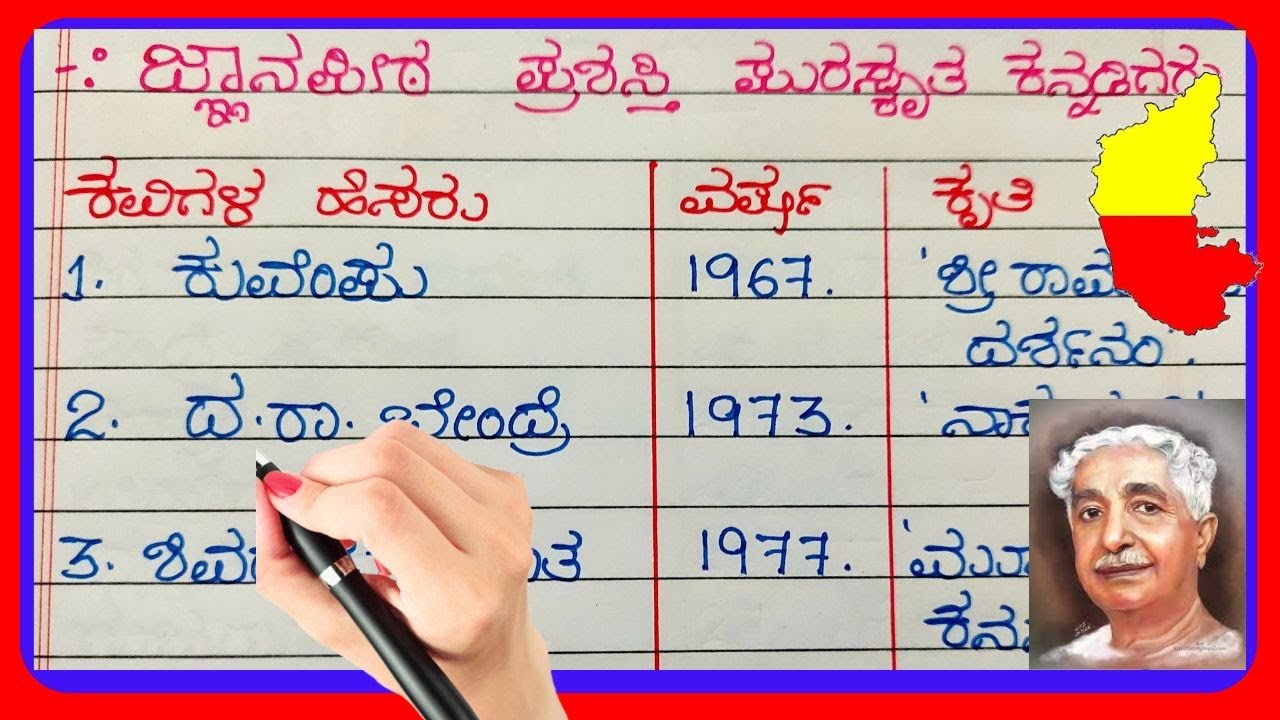 -: ಜ್ಞಾನಪೀಠ ಪ್ರಶಸ್ತಿ ಪುರಸ್ಕೃತ ಕನ್ನಡಿಗರು
ಕವಿಗಳ ಹೆಸರು ವರ್ಷ ಕೃತಿ
1. ಕುವೆಂಪು 1967. 'ಶ್ರೀ
ದರ್ಶನಂ'.
2. ದ.ರಾ. ಬೇಂದ್ರೆ 1973.
3. 1977.